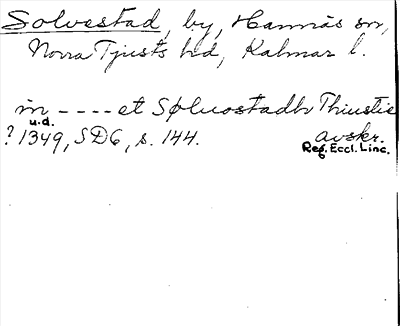 Solvestad, by, Hannäs sn,
Norra Tjusts hd, Kalmar l.
in ---- et Søluostadhr Thiustie
u.d.
? 1349, SD6, s. 144. avskr.
Reg. Eccl. Linc.